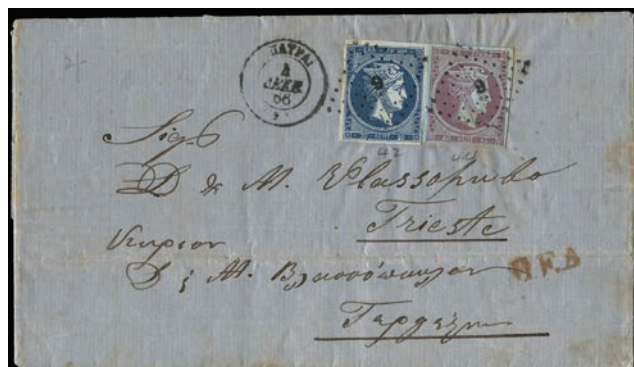 ΠΑΤΡΑΙ
ΔΕΚΕ
66
9
9
42
44
Sig.
D & M. Vlassopulo
Trieste
Κυριον
Δ & Μ. Βλασσόπουλον
Τεργέστην
P.F.D